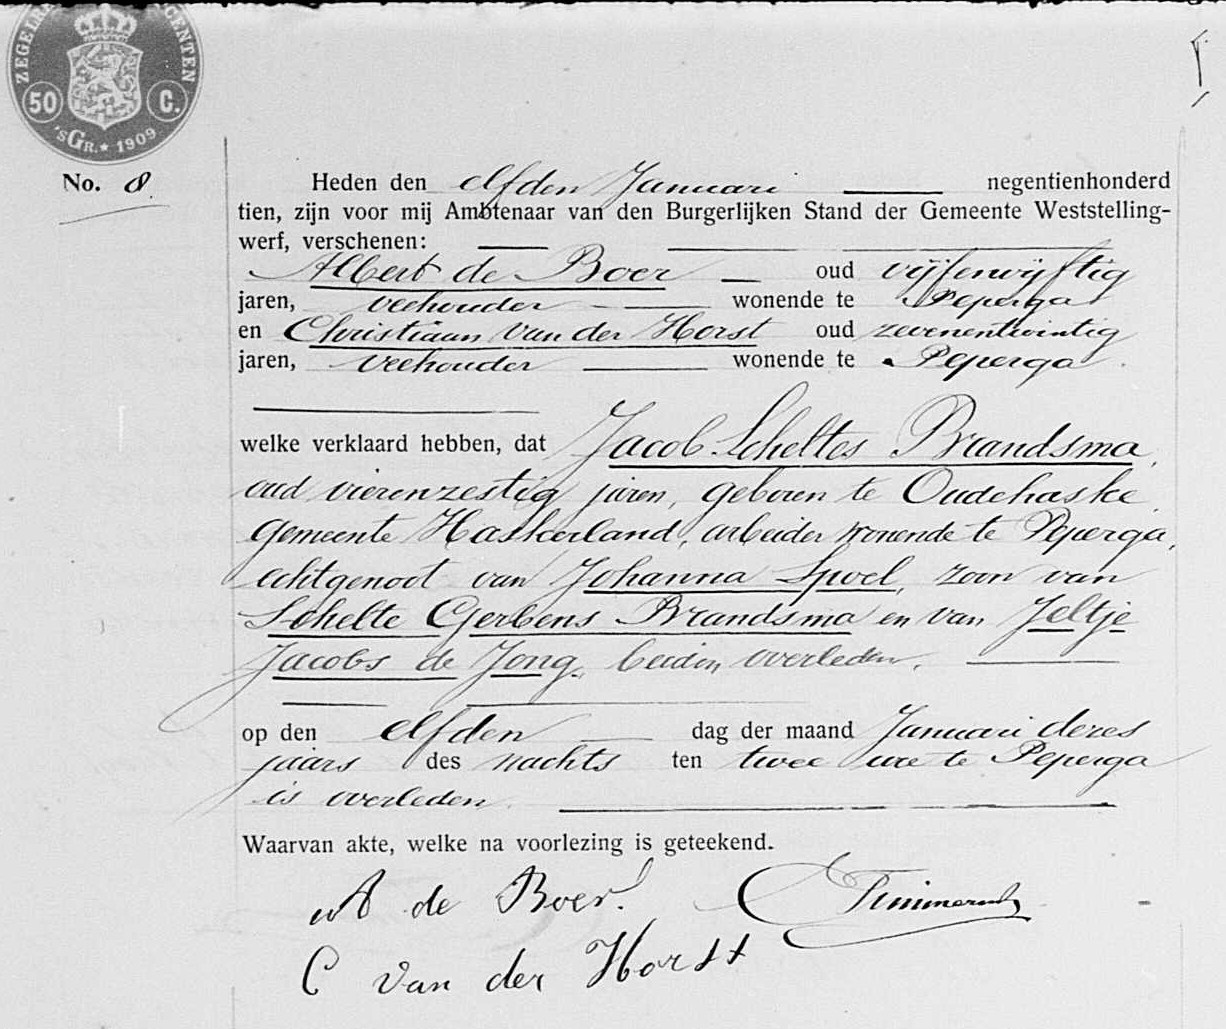 ZEGELRE GENTEN
50 C.
'sGR.★ 1909
No. 8.
Heden den elfden Januari negentienhonderd
tien, zijn voor mij Ambtenaar van den Burgerlijken Stand der Gemeente Weststelling-
werf, verschenen:
Albert de Boer oud vijfenvijftig
jaren, veehouder wonende te Peperga
en Christiaan van der Horst oud zevenentwintig
jaren, veehouder wonende te Peperga.
welke verklaard hebben, dat Jacob Scheltes Brandsma,
oud vierenzestig jaren, geboren te Oudehaske
gemeente Haskerland, arbeider wonende te Peperga,
echtgenoot van Johanna Spoel, zoon van
Schelte Gerbens Brandsma en van Jeltje
Jacobs de Jong, beiden overleden.
op den elfden dag der maand Januari dezes
jaars des nachts ten twee ure te Peperga
is overleden.
Waarvan akte, welke na voorlezing is geteekend.
A de Boer.
C van der Horst